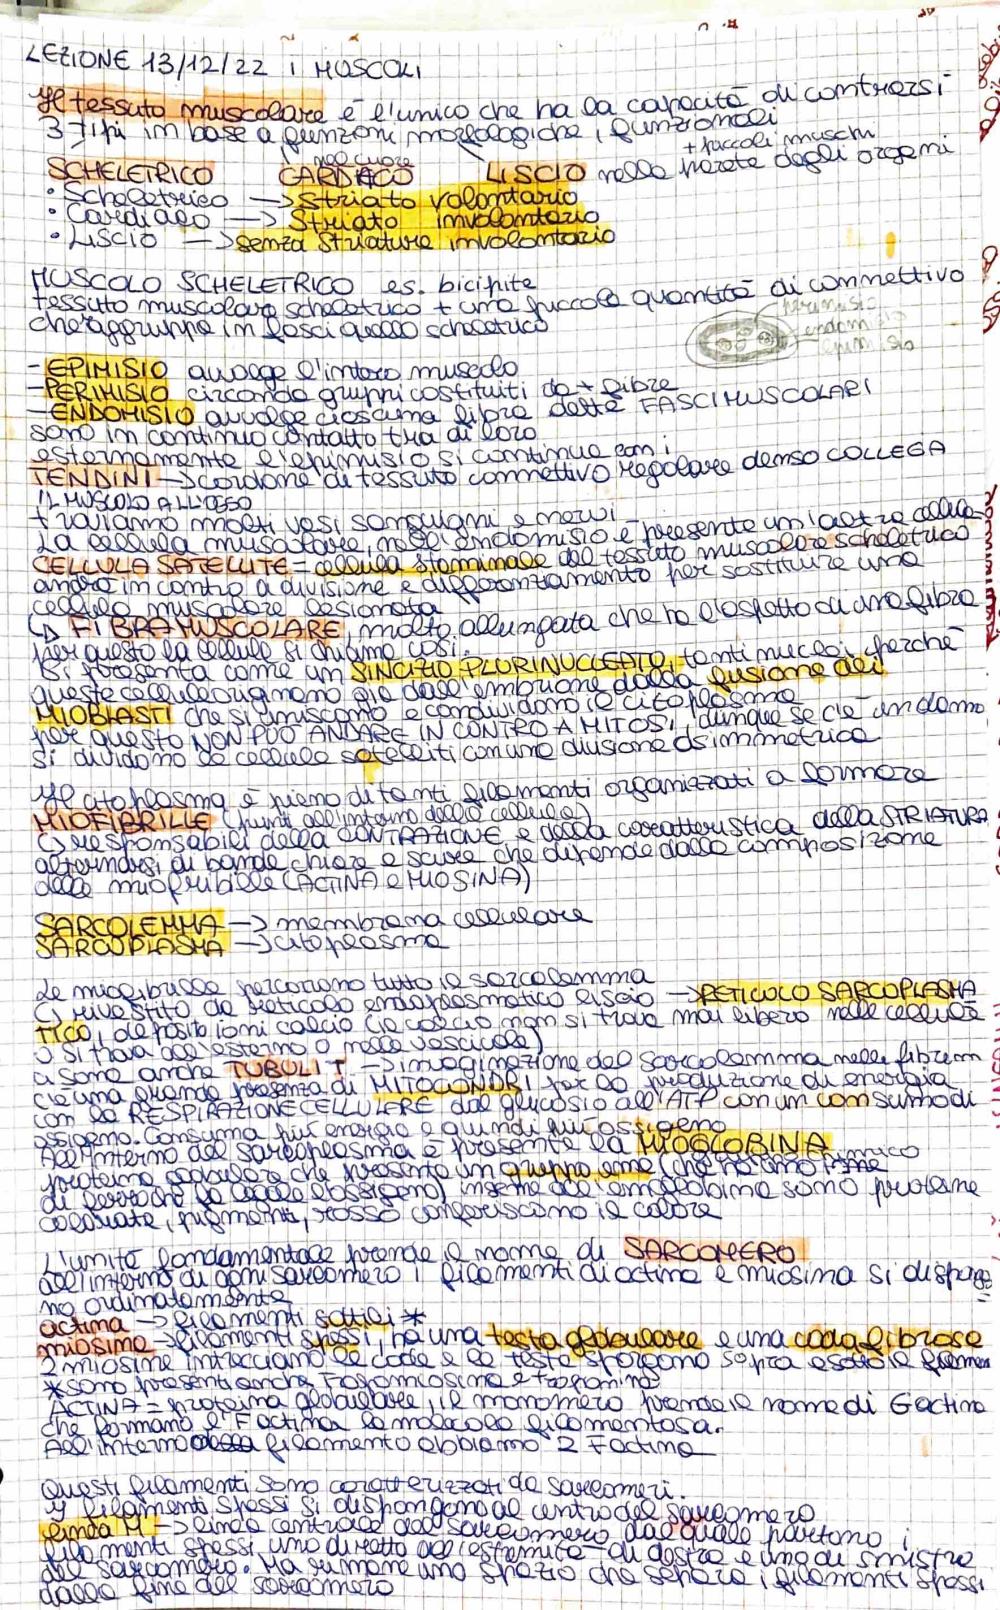 LEZIONE 13/12/22 i MUSCOLI
Il tessuto muscolare è l'unico che ha la capacità di contrarsi
3 tipi in base a funzioni morfologiche, funzionali
nel cuore + piccoli muschi
SCHELETRICO CARDIACO LISCIO nelle parete degli organi
• Scheletrico -> Striato volontario
• Cardiaco -> Striato involontario
• Liscio -> senza striature involontario
MUSCOLO SCHELETRICO es. bicipite
tessuto muscolare scheletrico + una piccola quantità di connettivo
che raggruppa in fasci quello scheletrico
perimisio
endomisio
epimisio
- EPIMISIO avvolge l'intero muscolo
- PERIMISIO circonda gruppi costituiti da + fibre
- ENDOMISIO avvolge ciascuna fibra dette FASCI MUSCOLARI
sono in continuo contatto tra di loro
esternamente l'epimisio si continua con i
TENDINI -> cordone di tessuto connettivo regolare denso COLLEGA
IL MUSCOLO ALL'OSSO
troviamo molti vasi sanguigni e nervi
La cellula muscolare, nell'endomisio è presente un'altra cellula
CELLULA SATELLITE = cellula staminale del tessuto muscolare scheletrico
andrà in contro a divisione e differenziamento per sostituire una
cellula muscolare lesionata
↳ FIBRA MUSCOLARE, molto allungata che ha l'aspetto di una fibra
per questo la cellula si chiama così.
Si presenta come un SINCIZIO PLURINUCLEATO, tanti nuclei perché
queste cellule originano già dall'embrione dalla fusione dei
MIOBLASTI che si uniscono e condividono il citoplasma
per questo NON PUÒ ANDARE IN CONTRO A MITOSI, dunque se c'è un danno
si dividono le cellule satelliti con una divisione asimmetrica
Il citoplasma è pieno di tanti filamenti organizzati a formare
MIOFIBRILLE (all'interno della cellula)
↳ responsabili della CONTRAZIONE e della caratteristica della STRIATURA
alternarsi di bande chiare e scure che dipende dalla composizione
delle miofibrille (ACTINA e MIOSINA)
SARCOLEMMA -> membrana cellulare
SARCOPLASMA -> citoplasma
Le miofibrille percorrono tutto il sarcolemma
↳ rivestito da reticolo endoplasmatico liscio -> RETICOLO SARCOPLASMA
TICO, deposito ioni calcio (il calcio non si trova mai libero nelle cellule
o si trova all'esterno o nelle vescicole)
ci sono anche TUBULI T -> invaginazione del sarcolemma nelle fibre
c'è una grande presenza di MITOCONDRI per la produzione di energia
con la RESPIRAZIONE CELLULARE dal glucosio all'ATP con un consumo di
ossigeno. Consuma più energia e quindi più ossigeno
All'interno del sarcoplasma è presente la MIOGLOBINA
proteina globulare che presenta un gruppo eme (che ha uno ione
di ferro che lo lega all'ossigeno) insieme all'emoglobina sono proteine
colorate, pigmenti, rosso conferiscono il colore
L'unità fondamentale prende il nome di SARCOMERO
all'interno di ogni sarcomero i filamenti di actina e miosina si dispon=
no ordinatamente
actina -> filamenti sottili *
miosina -> filamenti spessi, ha una testa globulare e una coda fibrosa
2 miosine intrecciano le code e le teste sporgono sopra e sotto il filamen
* sono presenti anche Tropomiosina e troponina
ACTINA = proteina globulare, il monomero prende il nome di G actina
che formano l'F actina la molecola filamentosa.
All'interno del filamento abbiamo 2 F actina
Questi filamenti sono caratterizzati da sarcomeri.
I filamenti spessi si dispongono al centro del sarcomero
linea M -> linea centrale del sarcomero dal quale partono i
filamenti spessi uno diretto all'estremità di destra e uno di sinistra
del sarcomero. Ma rimane uno spazio che separa i filamenti spessi
dalla fine del sarcomero